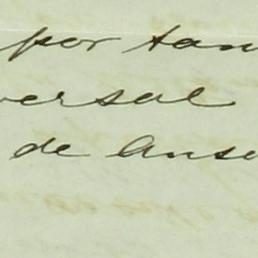 por tan
versal
de ansa